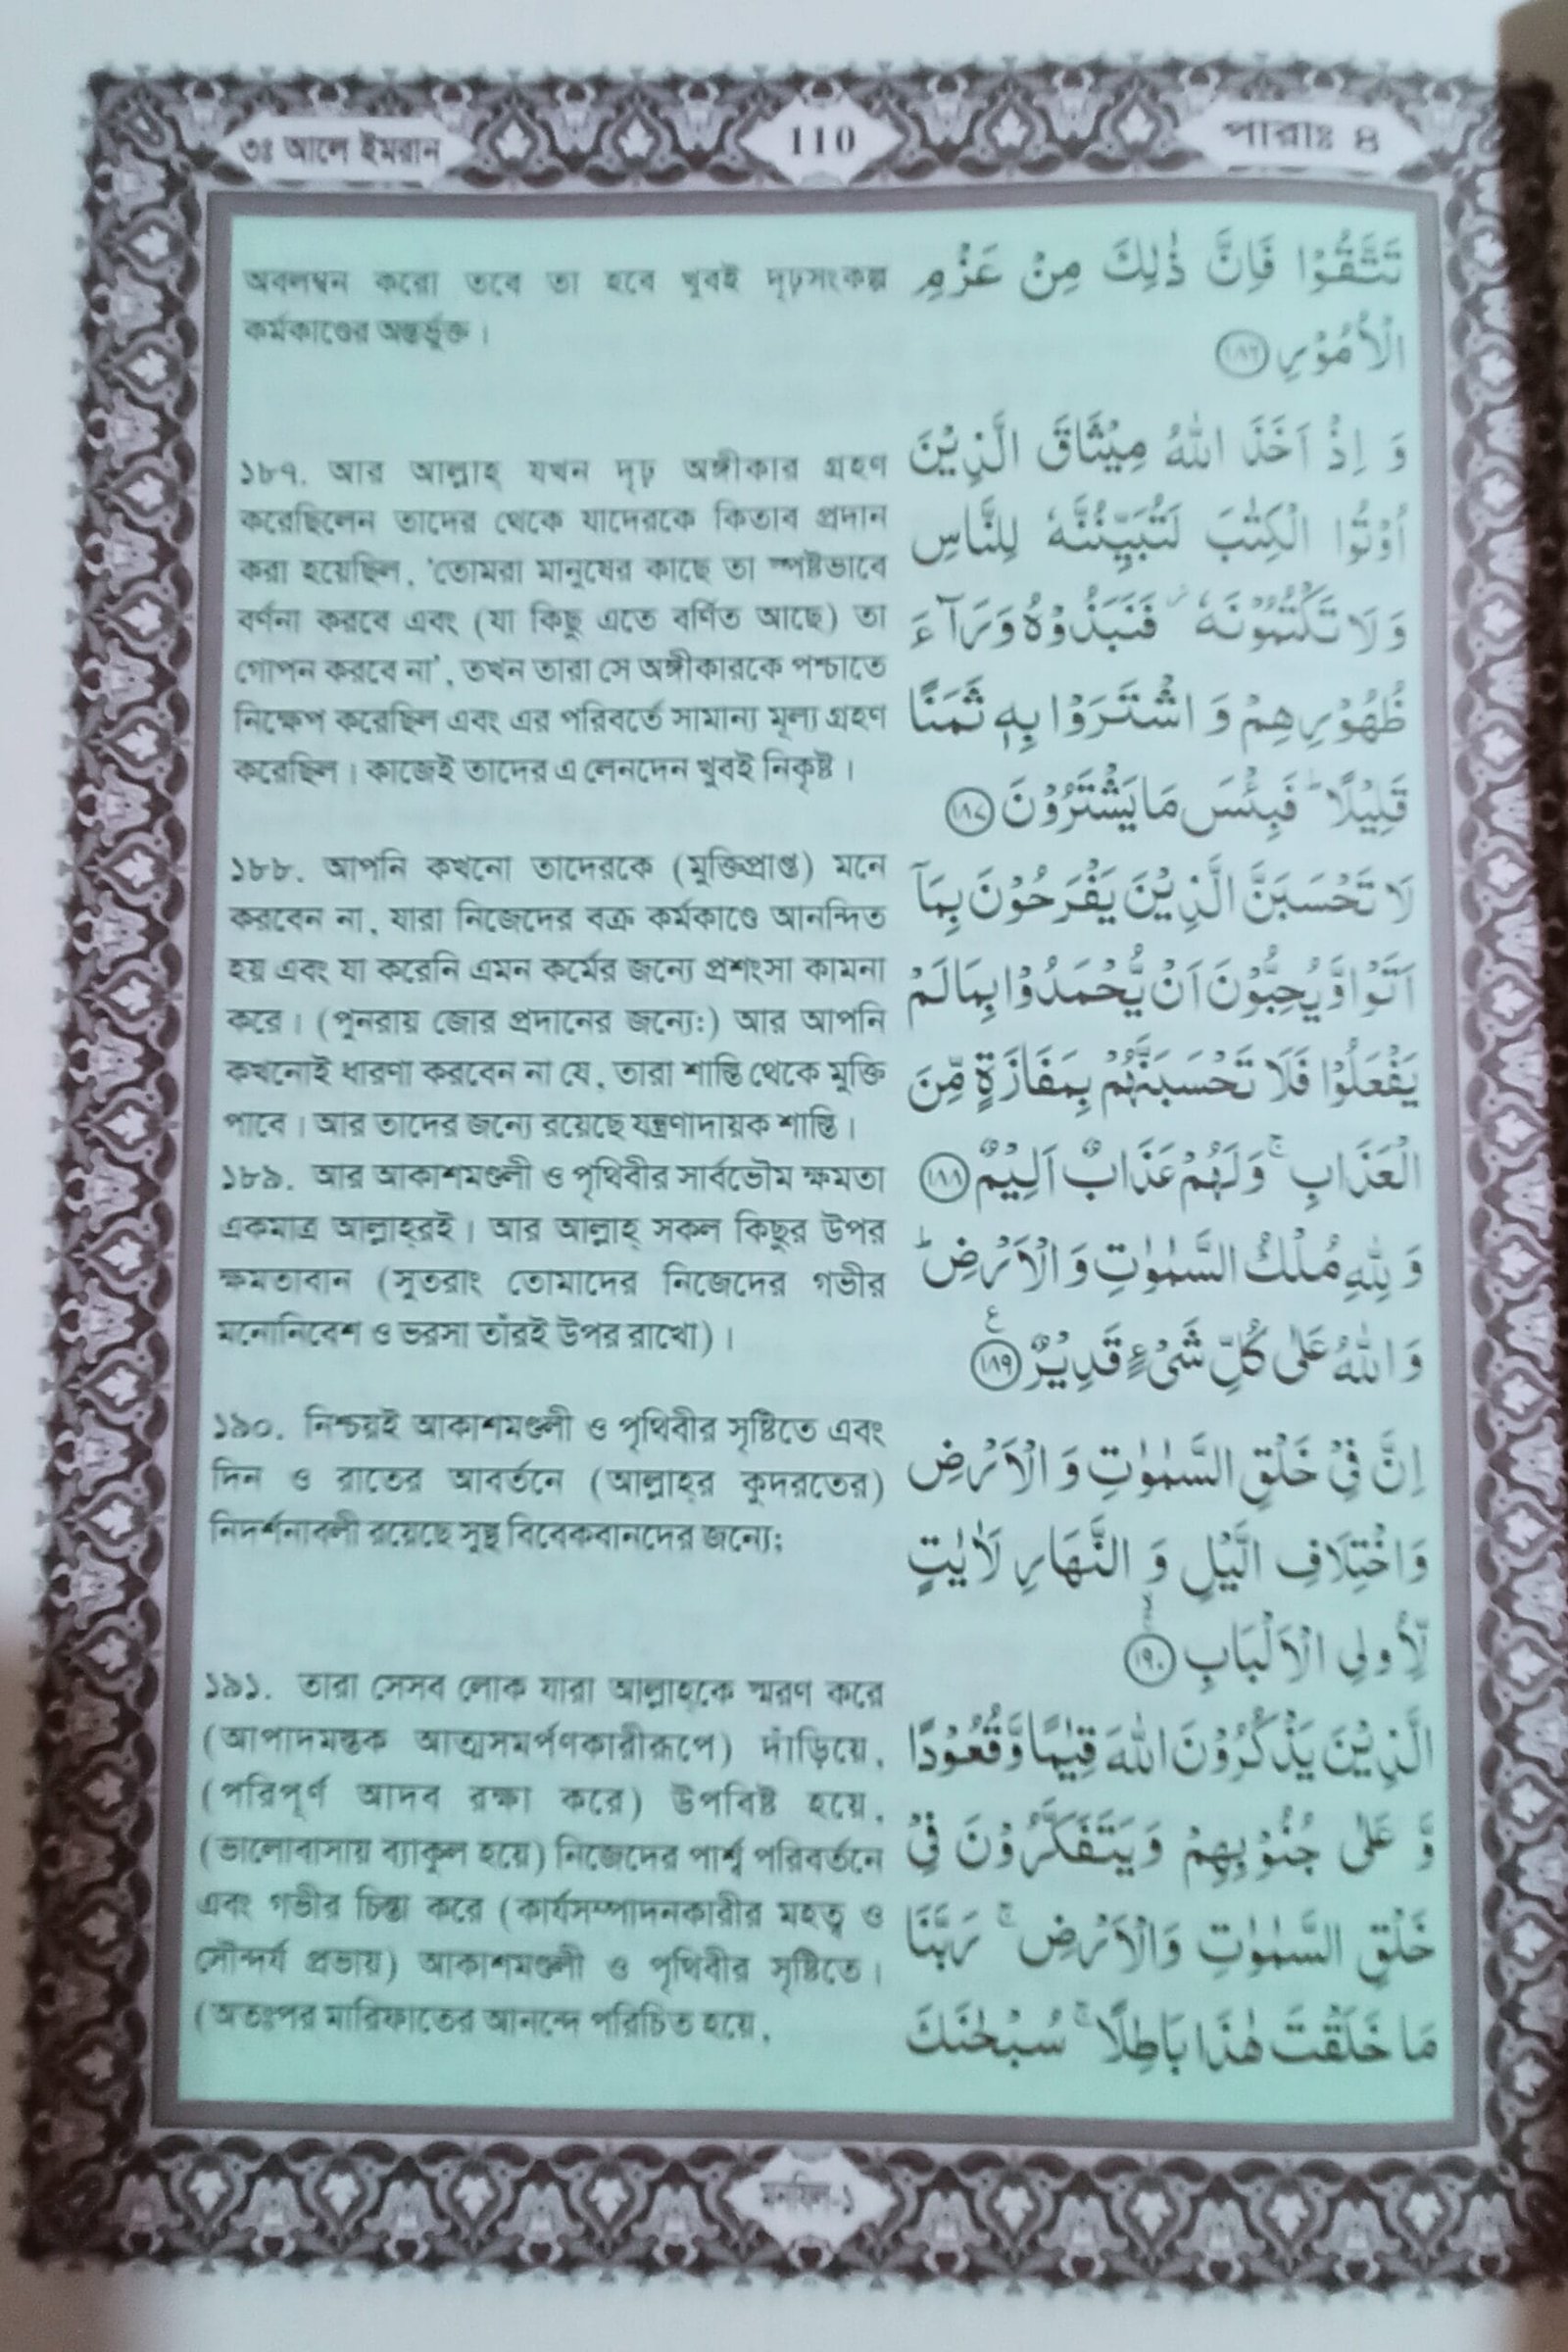 ৩ঃ আলে ইমরান
110
পারাঃ ৪
অবলম্বন করো তবে তা হবে খুবই দৃঢ়সংকল্প
কর্মকাণ্ডের অন্তর্ভুক্ত।
১৮৭. আর আল্লাহ্ যখন দৃঢ় অঙ্গীকার গ্রহণ
করেছিলেন তাদের থেকে যাদেরকে কিতাব প্রদান
করা হয়েছিল, 'তোমরা মানুষের কাছে তা স্পষ্টভাবে
বর্ণনা করবে এবং (যা কিছু এতে বর্ণিত আছে) তা
গোপন করবে না', তখন তারা সে অঙ্গীকারকে পশ্চাতে
নিক্ষেপ করেছিল এবং এর পরিবর্তে সামান্য মূল্য গ্রহণ
করেছিল। কাজেই তাদের এ লেনদেন খুবই নিকৃষ্ট।
১৮৮. আপনি কখনো তাদেরকে (মুক্তিপ্রাপ্ত) মনে
করবেন না, যারা নিজেদের বক্র কর্মকাণ্ডে আনন্দিত
হয় এবং যা করেনি এমন কর্মের জন্যে প্রশংসা কামনা
করে। (পুনরায় জোর প্রদানের জন্যে:) আর আপনি
কখনোই ধারণা করবেন না যে, তারা শাস্তি থেকে মুক্তি
পাবে। আর তাদের জন্যে রয়েছে যন্ত্রণাদায়ক শাস্তি।
১৮৯. আর আকাশমণ্ডলী ও পৃথিবীর সার্বভৌম ক্ষমতা
একমাত্র আল্লাহ্‌রই। আর আল্লাহ্ সকল কিছুর উপর
ক্ষমতাবান (সুতরাং তোমাদের নিজেদের গভীর
মনোনিবেশ ও ভরসা তাঁরই উপর রাখো)।
১৯০. নিশ্চয়ই আকাশমণ্ডলী ও পৃথিবীর সৃষ্টিতে এবং
দিন ও রাতের আবর্তনে (আল্লাহ্‌র কুদরতের)
নিদর্শনাবলী রয়েছে সুস্থ বিবেকবানদের জন্যে;
১৯১. তারা সেসব লোক যারা আল্লাহ্‌কে স্মরণ করে
(আপাদমস্তক আত্মসমর্পণকারীরূপে) দাঁড়িয়ে,
(পরিপূর্ণ আদব রক্ষা করে) উপবিষ্ট হয়ে,
(ভালোবাসায় ব্যাকুল হয়ে) নিজেদের পার্শ্ব পরিবর্তনে
এবং গভীর চিন্তা করে (কার্যসম্পাদনকারীর মহত্ব ও
সৌন্দর্য প্রভায়) আকাশমণ্ডলী ও পৃথিবীর সৃষ্টিতে।
(অতঃপর মারিফাতের আনন্দে পরিচিত হয়ে,
تَتَّقُوْا فَاِنَّ ذٰلِكَ مِنْ عَزْمِ
الْاُمُوْرِ ﴿۱۸۶﴾
وَ اِذْ اَخَذَ اللّٰهُ مِيْثَاقَ الَّذِيْنَ
اُوْتُوا الْكِتٰبَ لَتُبَيِّنُنَّهٗ لِلنَّاسِ
وَلَا تَكْتُمُوْنَهٗ ؗ فَنَبَذُوْهُ وَرَآءَ
ظُهُوْرِهِمْ وَ اشْتَرَوْا بِهٖ ثَمَنًا
قَلِيْلًا ؕ فَبِئْسَ مَا يَشْتَرُوْنَ ﴿۱۸۷﴾
لَا تَحْسَبَنَّ الَّذِيْنَ يَفْرَحُوْنَ بِمَآ
اَتَوْا وَّيُحِبُّوْنَ اَنْ يُّحْمَدُوْا بِمَا لَمْ
يَفْعَلُوْا فَلَا تَحْسَبَنَّهُمْ بِمَفَازَةٍ مِّنَ
الْعَذَابِ ۚ وَلَهُمْ عَذَابٌ اَلِيْمٌ ﴿۱۸۸﴾
وَ لِلّٰهِ مُلْكُ السَّمٰوٰتِ وَ الْاَرْضِ ؕ
وَ اللّٰهُ عَلٰى كُلِّ شَيْءٍ قَدِيْرٌ ﴿۱۸۹﴾ ع
اِنَّ فِيْ خَلْقِ السَّمٰوٰتِ وَ الْاَرْضِ
وَاخْتِلَافِ الَّيْلِ وَ النَّهَارِ لَاٰيٰتٍ
لِّاُولِي الْاَلْبَابِ ﴿۱۹۰﴾
الَّذِيْنَ يَذْكُرُوْنَ اللّٰهَ قِيٰمًا وَّقُعُوْدًا
وَّ عَلٰى جُنُوْبِهِمْ وَيَتَفَكَّرُوْنَ فِيْ
خَلْقِ السَّمٰوٰتِ وَالْاَرْضِ ۚ رَبَّنَا
مَا خَلَقْتَ هٰذَا بَاطِلًا ۚ سُبْحٰنَكَ
মনযিল-১